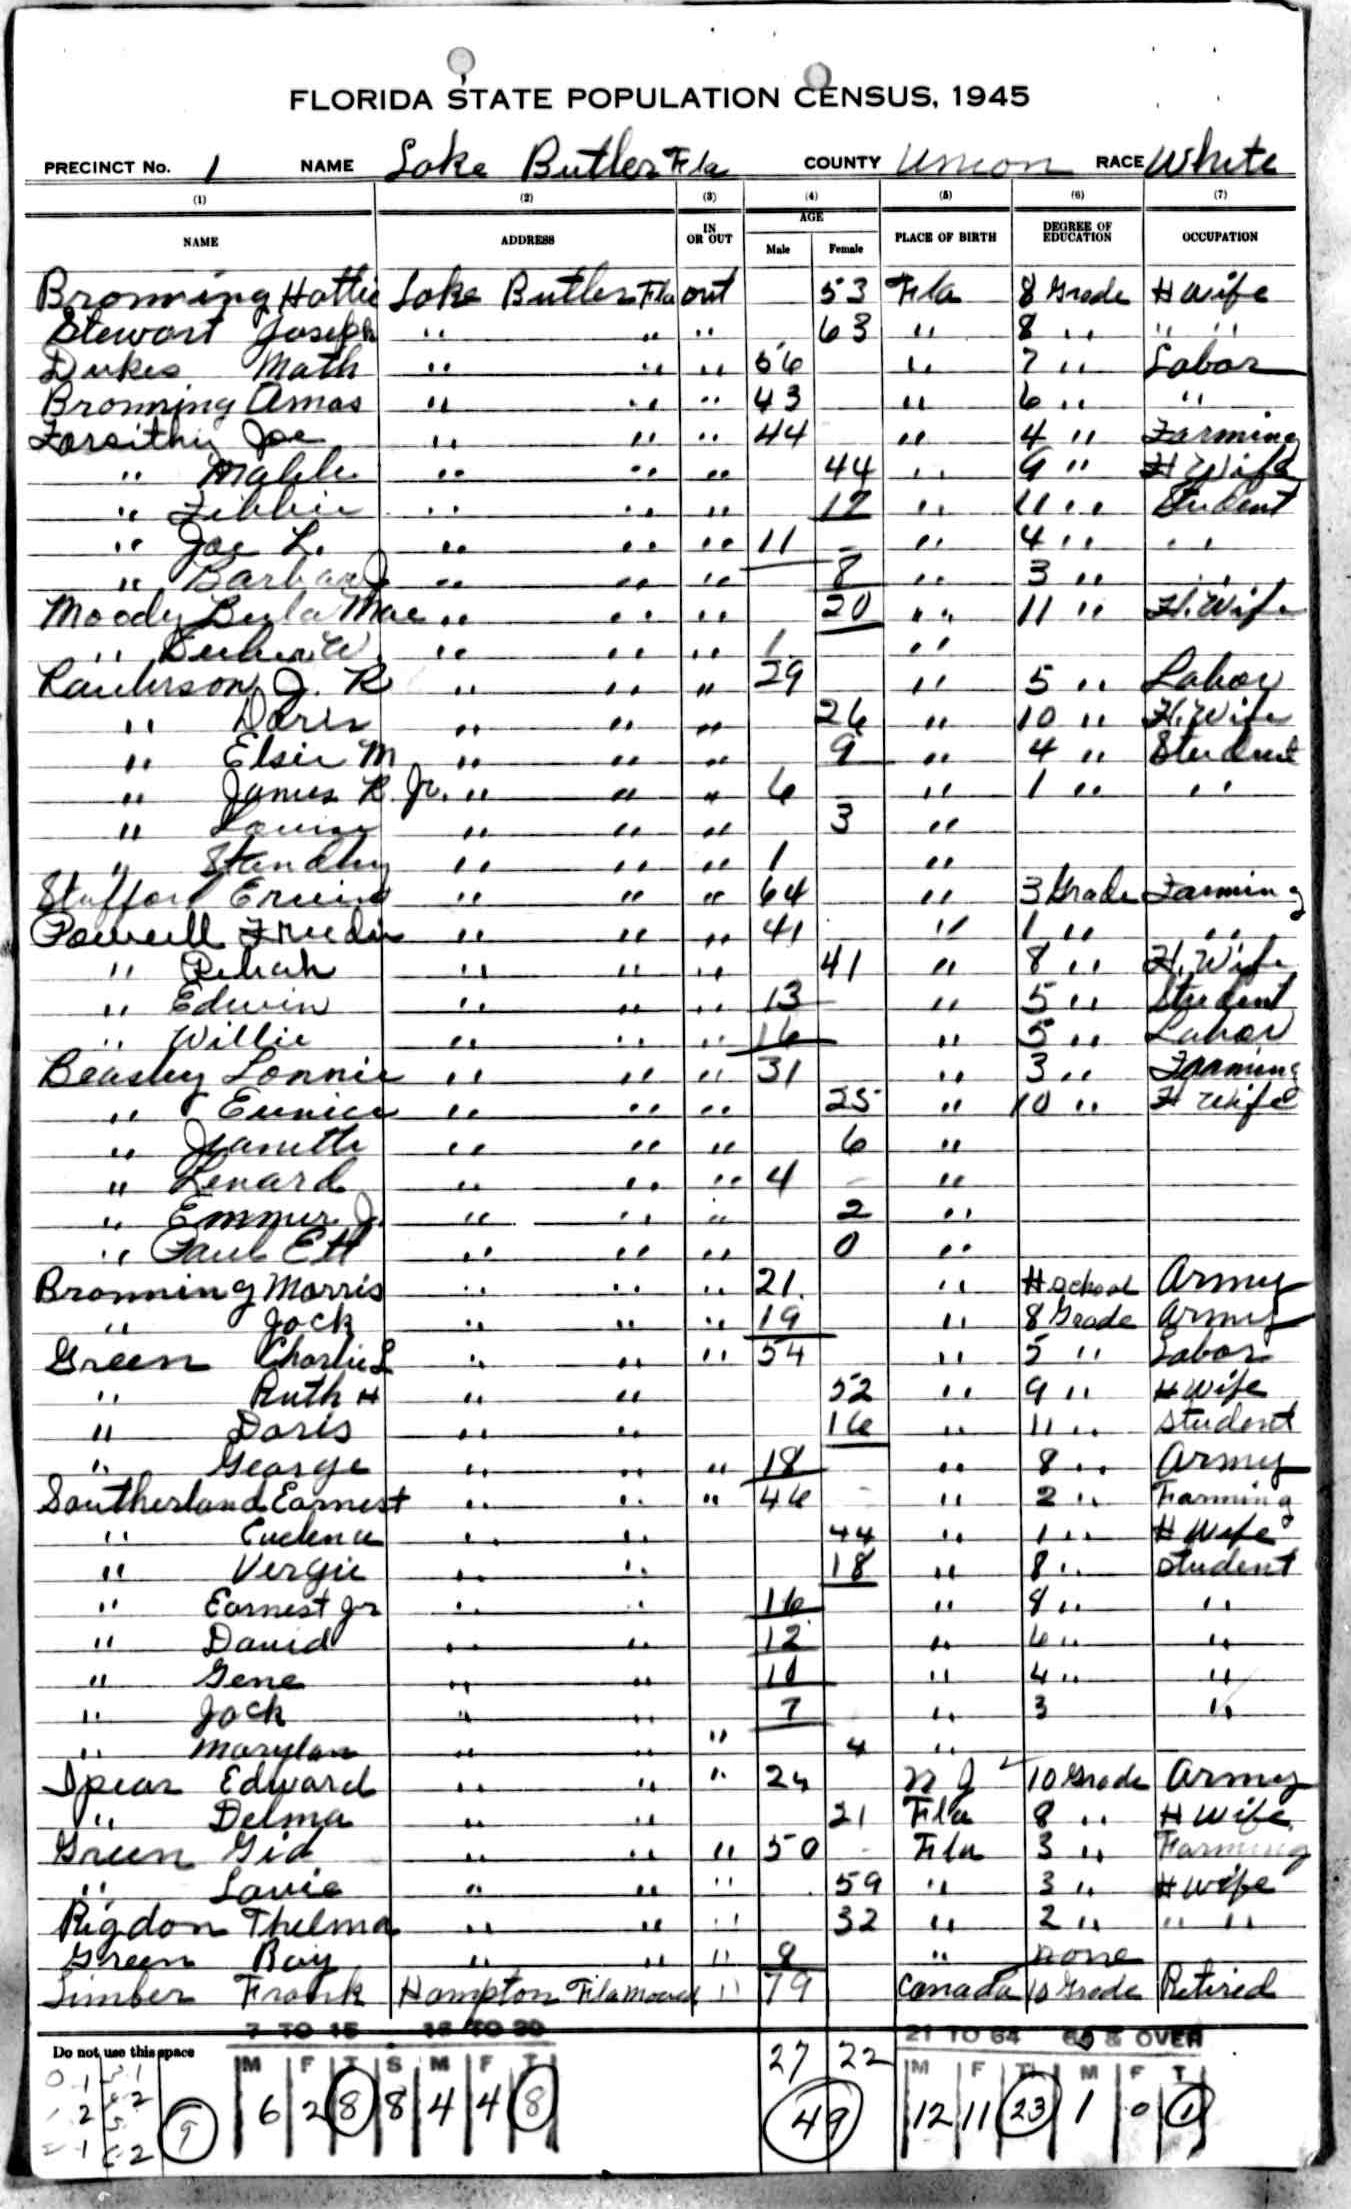 FLORIDA STATE POPULATION CENSUS, 1945
PRECINCT No. 1 NAME Lake Butler Fla COUNTY Union RACE White
(1) (2) (3) (4) (5) (6) (7)
NAME ADDRESS IN OR OUT AGE Male Female PLACE OF BIRTH DEGREE OF EDUCATION OCCUPATION
Browning Hattie Lake Butler Fla out 53 Fla 8 Grade H wife
Stewart Joseph " " " 63 " 8 " " "
Dukes Math " " " 56 " 7 " Labor
Browning Amos " " " 43 " 6 " "
Joe " " " 44 " 4 " Farming
" " " " 44 " 9 " H Wife
" " " " " 11 " Student
" Joe L. " " " 11 " 4 " "
" Barbara J " " " 8 " 3 " "
Moody Beula Mae " " " 20 " 11 " H. Wife
" W " " " 1 "
J. R " " " 29 " 5 " Labor
" Doris " " " 26 " 10 " H. Wife
" Elsie M " " " 9 " 4 " Student
" James R. Jr. " " " 6 " 1 " "
" Louise " " " 3 "
" " " " 1 "
Stafford " " " 64 " 3 Grade Farming
Powell " " " 41 " 1 " "
" " " " 41 " 8 " H. Wife
" Edwin " " " 13 " 5 " Student
" Willie " " " 16 " 5 " Labor
Beasley Lonnie " " " 31 " 3 " Farming
" Eunice " " " 25 " 10 " H Wife
" " " " 6 "
" Lenard " " " 4 "
" Emmer J. " " " 2 "
" " " " 0 "
Browning Morris " " " 21 " H School Army
" Jack " " " 19 " 8 Grade Army
Green Charlie L " " " 54 " 5 " Labor
" Ruth H " " 52 " 9 " H Wife
" Doris " " 16 " 11 " Student
" George " " " 18 " 8 " Army
Southerland Earnest " " " 46 " 2 " Farming
" " " 44 " 1 " H Wife
" Vergie " " 18 " 8 " Student
" Earnest Jr " " 16 " " "
" David " " 12 " 6 " "
" Gene " " " 4 " "
" Jack " " 7 " 3 "
" Marylan " " " 4 "
Spear Edward " " " 24 N J 10 Grade Army
" Delma " " 21 Fla 8 " H Wife
Green Gid " " " 50 Fla 3 " Farming
" " " " 59 " 3 " H Wife
Rigdon Thelma " " " 32 " 2 " " "
Green Roy " " " 8 " none
Frank Hampton Fla Moved " 79 Canada 10 Grade Retired
7 TO 15 16 TO 20 21 TO 64 65 & OVER
Do not use this space M F T S M F T 27 22 M F T M F T
9 6 2 8 8 4 4 8 49 12 11 23 1 0 1